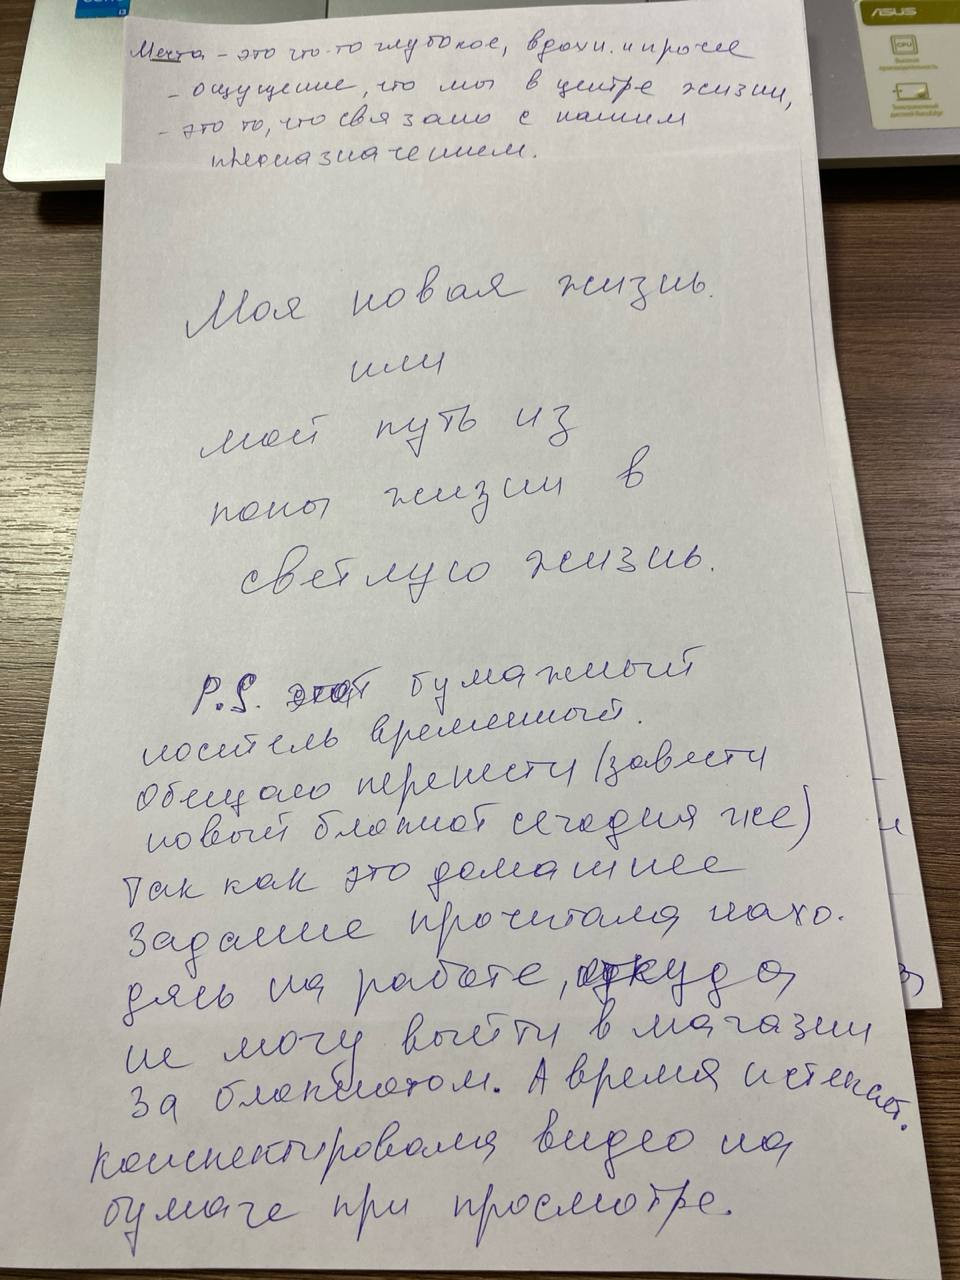 CORE
i3
ASUS
CPU
Мечта - это что-то глубокое, вдохн. и прочее
- ощущение, что мы в центре жизни,
- это то, что связано с нашим
предназначением.
Моя новая жизнь.
или
мой путь из
попы жизни в
светлую жизнь.
P.S. этот бумажный
носитель временный.
Обещаю перенести (завести
новый блокнот сегодня же)
Так как это домашнее
задание прочитала нахо-
дясь на работе, откуда
не могу выйти в магазин
за блокнотом. А время истекает.
Конспектировала видео на
бумаге при просмотре.